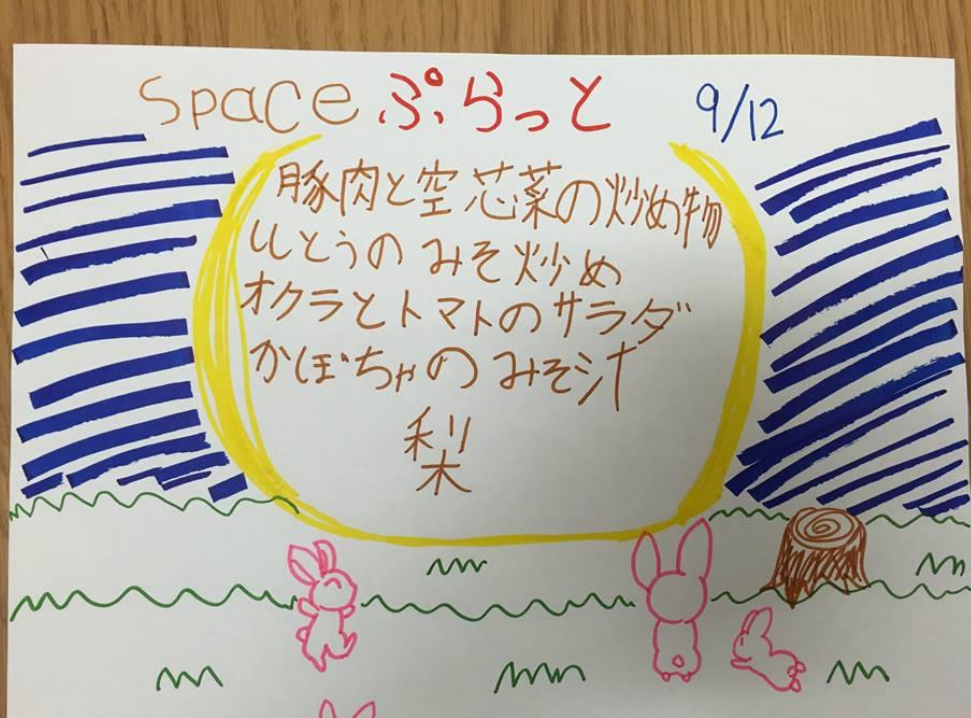 Space ぷらっと 9/12
豚肉と空芯菜の炒め物
ししとうのみそ炒め
オクラとトマトのサラダ
かぼちゃのみそ汁
梨